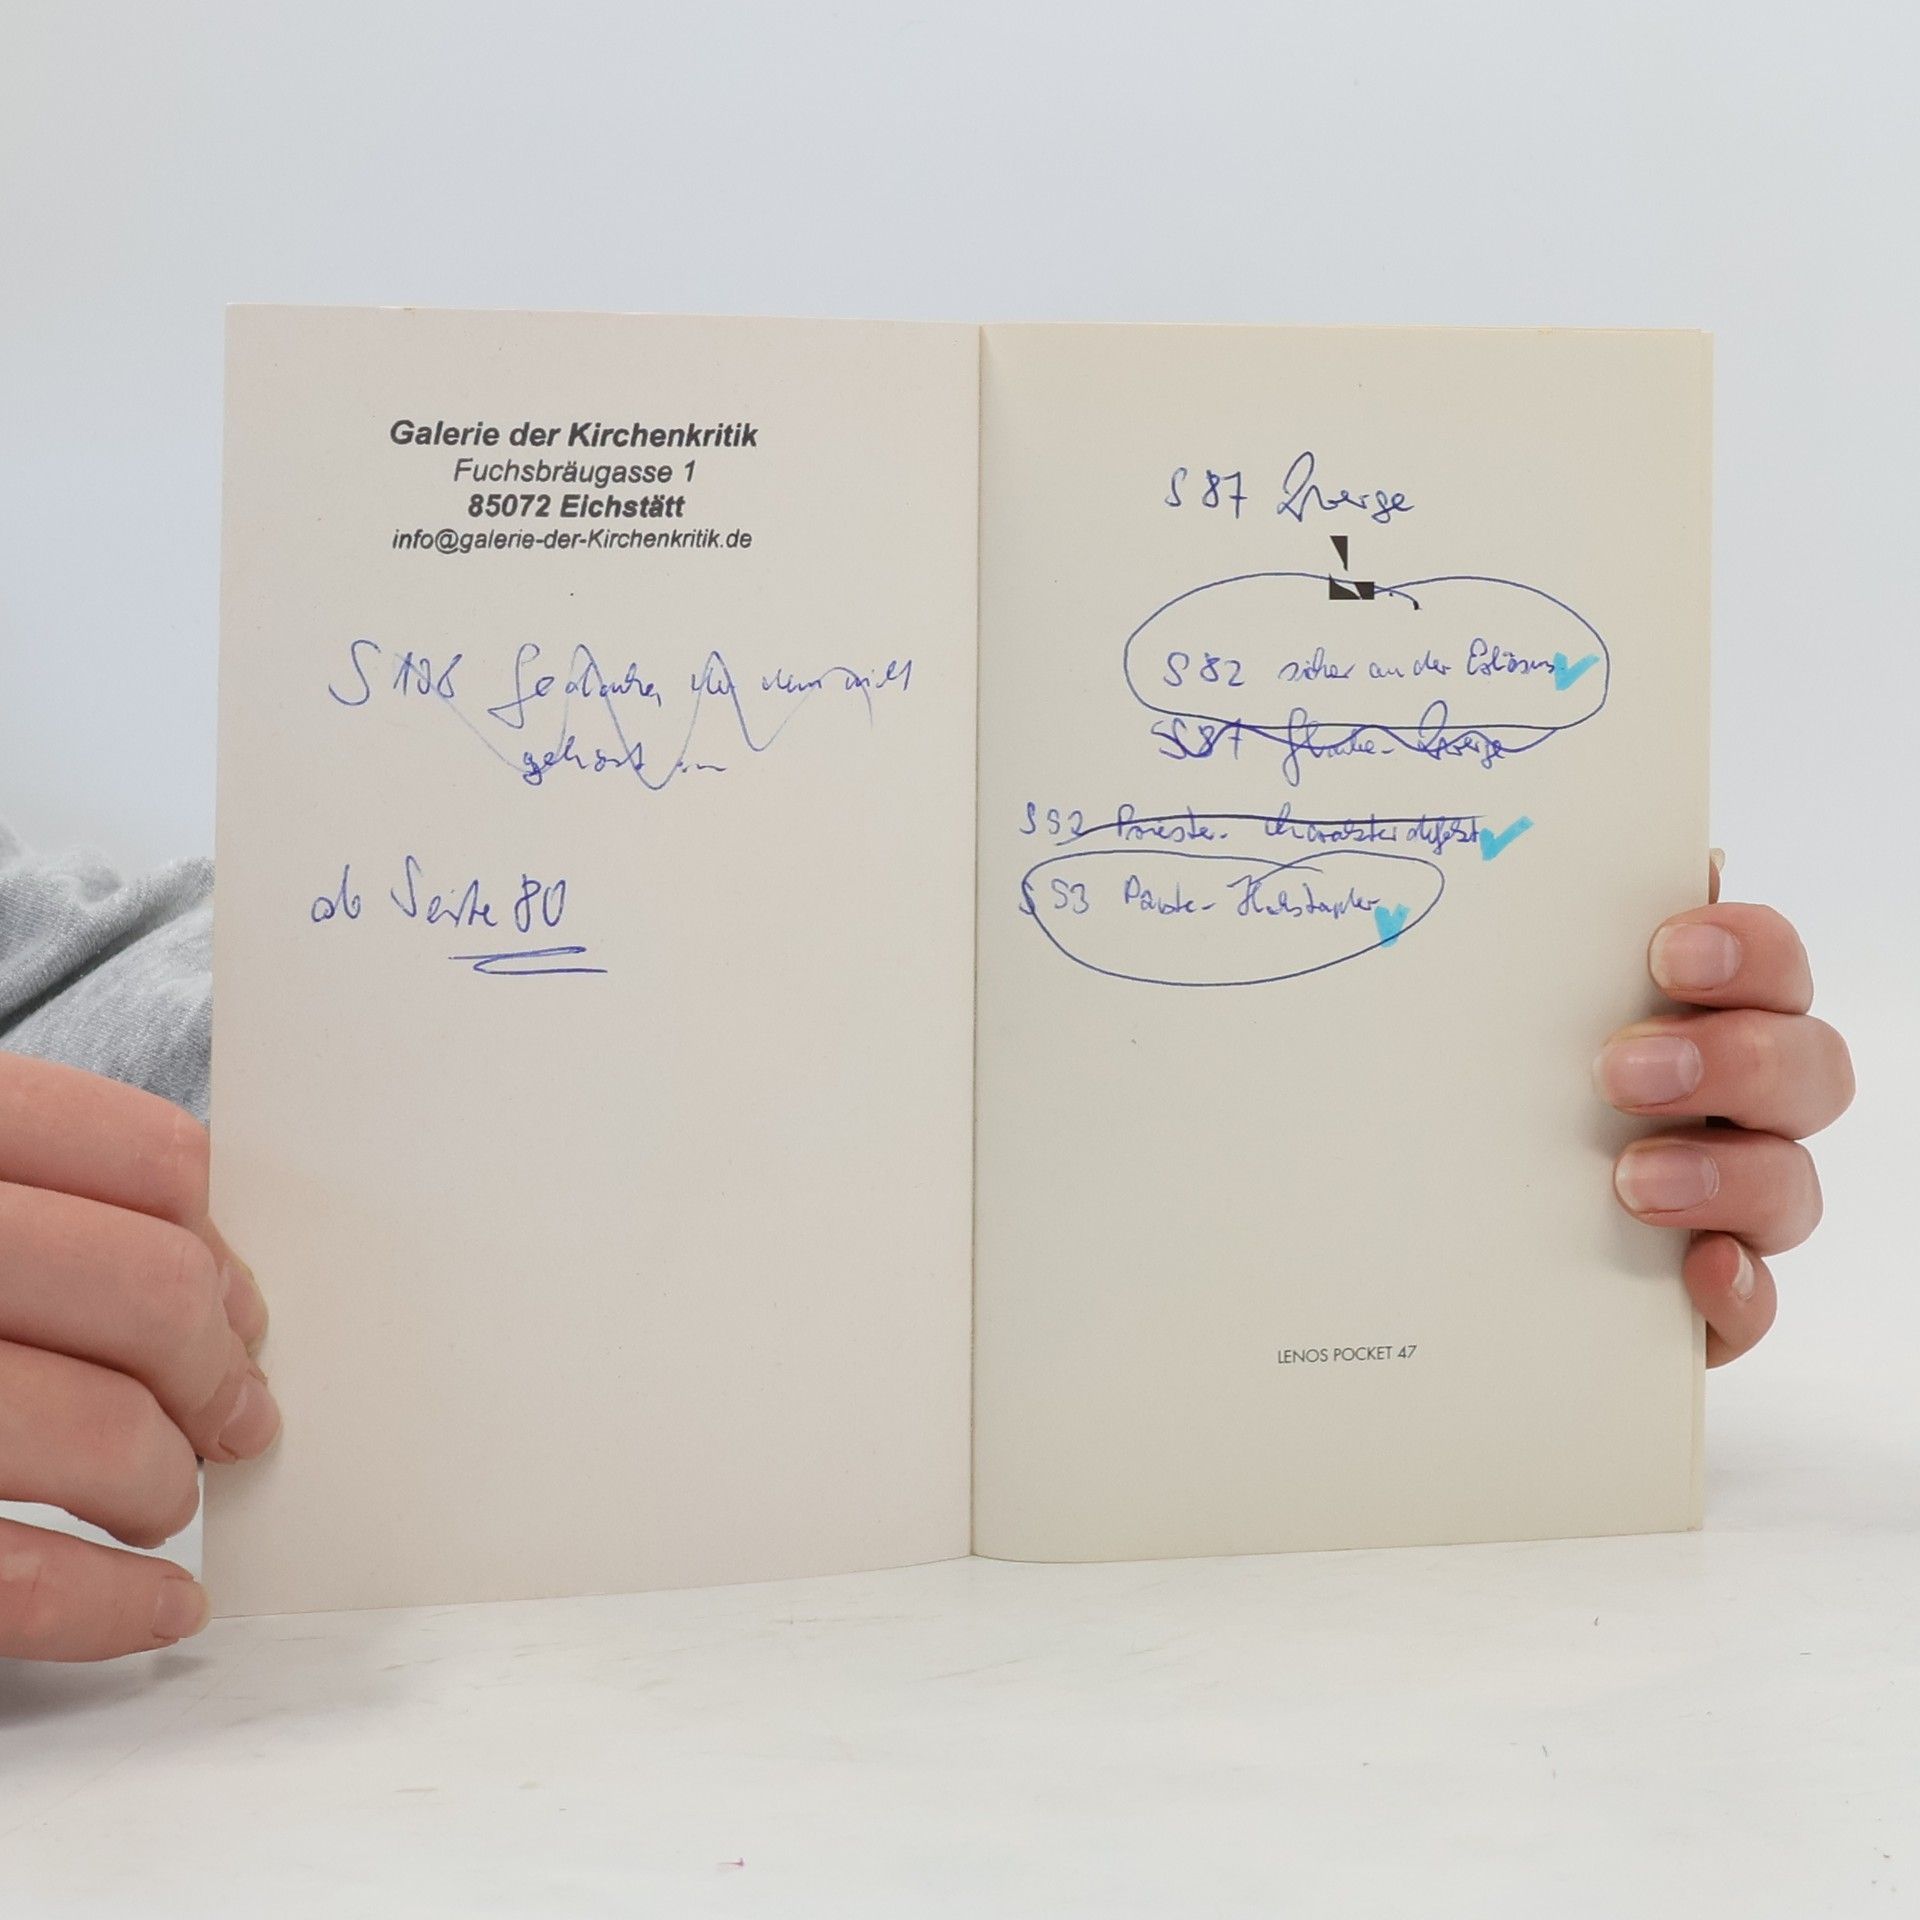 Galerie der Kirchenkritik
Fuchsbräugasse 1
85072 Eichstätt
info@galerie-der-Kirchenkritik.de
S 186 Gedanken, die nicht
gehört
ab Seite 80
S 87 Zwerge
S 82 sicher an der Erlösung
S 87 Glaube- Zwerge
S 92 Priester- Charakterdefekt
S 93 Hochstapler
LENOS POCKET 47